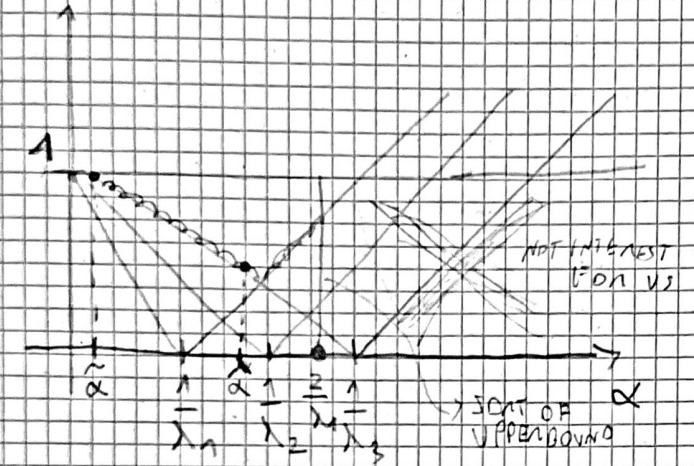 1
NOT INTEREST
FOR US
α̃ 1/λ1 α̃ 1/λ2 2/λ1 1/λ3 α
SORT OF
UPPERBOUND